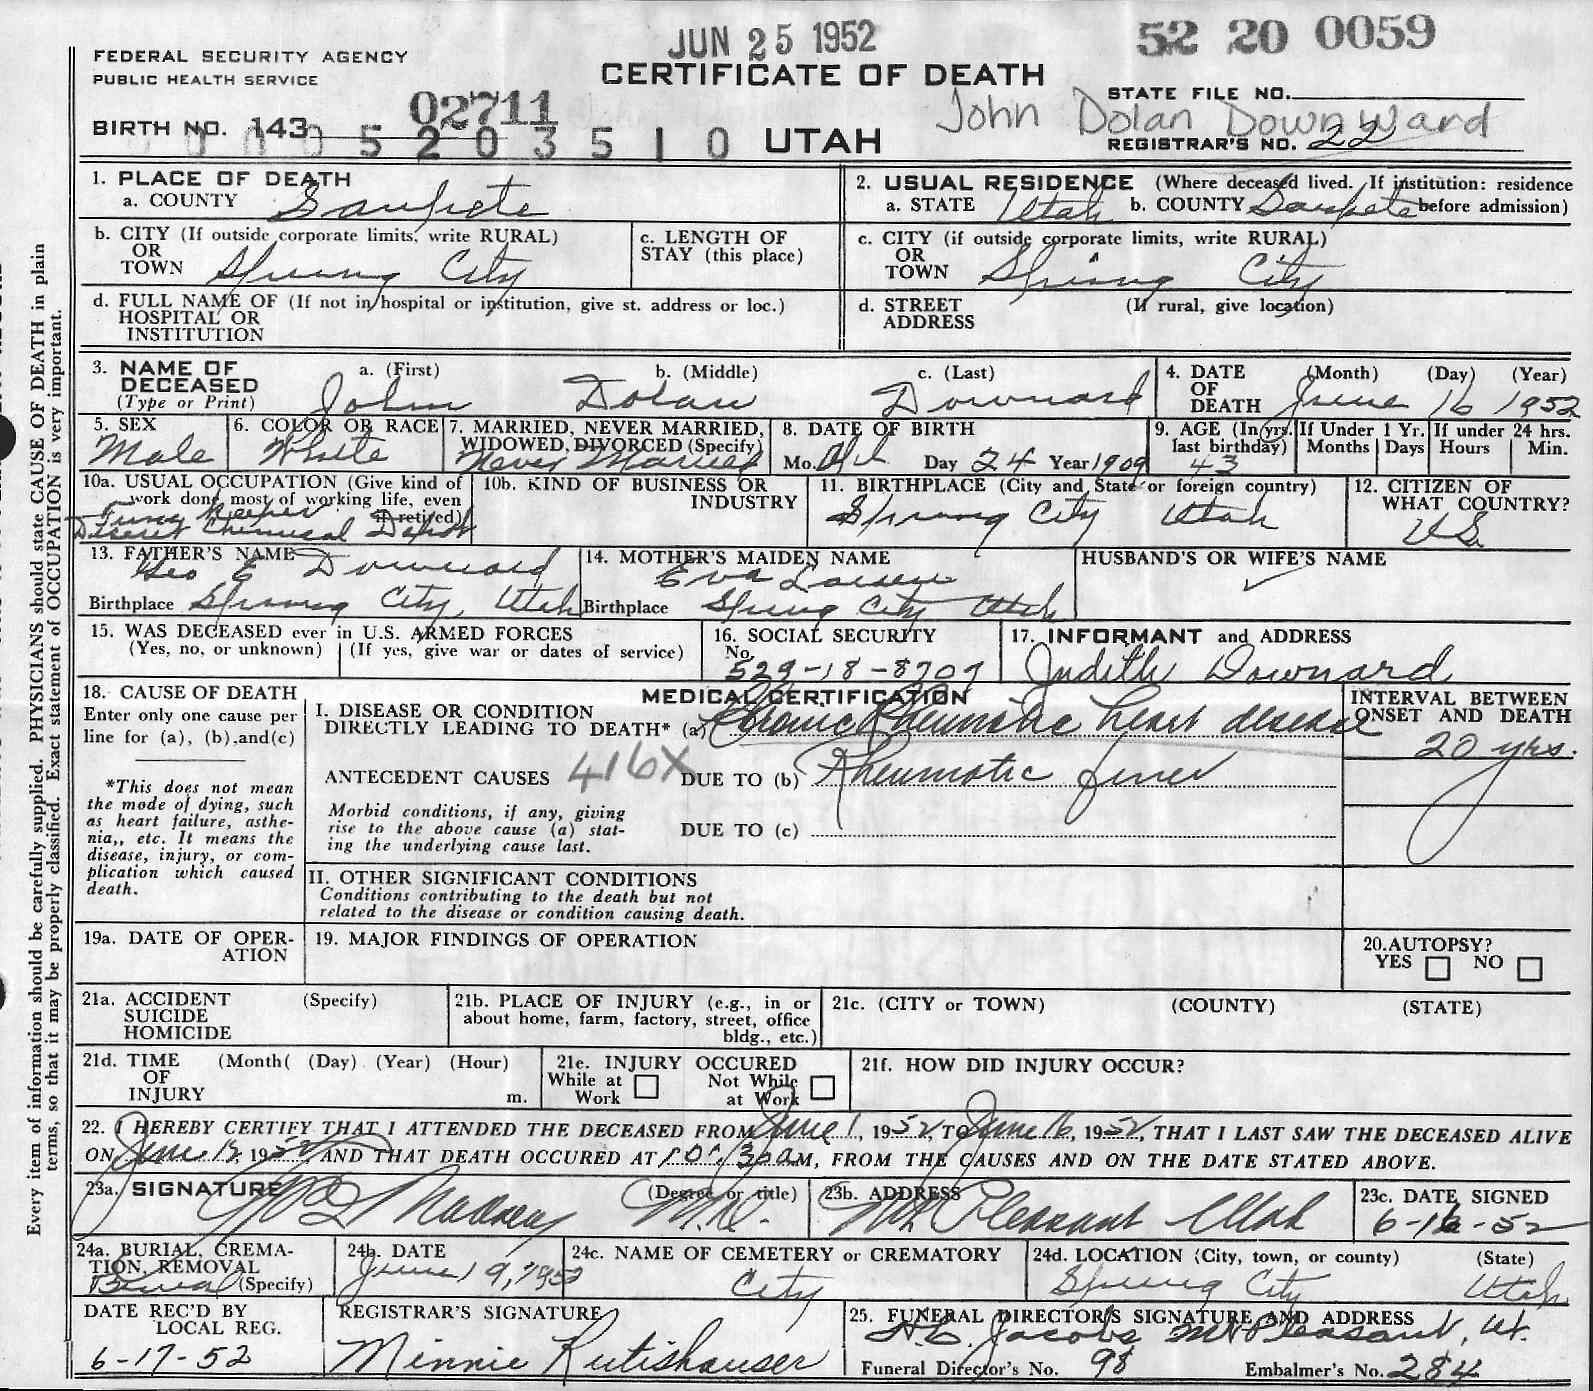 JUN 25 1952
52 20 0059
FEDERAL SECURITY AGENCY
PUBLIC HEALTH SERVICE
CERTIFICATE OF DEATH
STATE FILE NO.
John Dolan Downward
02711
BIRTH NO. 143
5 2 0 3 5 1 0
UTAH
REGISTRAR'S NO. 22
1. PLACE OF DEATH
a. COUNTY Sanpete
2. USUAL RESIDENCE (Where deceased lived. If institution: residence before admission)
a. STATE Utah b. COUNTY Sanpete
b. CITY (If outside corporate limits, write RURAL)
OR
TOWN Spring City
c. LENGTH OF
STAY (this place)
c. CITY (if outside corporate limits, write RURAL)
OR
TOWN Spring City
d. FULL NAME OF (If not in hospital or institution, give st. address or loc.)
HOSPITAL OR
INSTITUTION
d. STREET (If rural, give location)
ADDRESS
3. NAME OF DECEASED
(Type or Print)
a. (First) b. (Middle) c. (Last)
John Dolan Downard
4. DATE OF DEATH (Month) (Day) (Year)
June 16 1952
5. SEX
Male
6. COLOR OR RACE
White
7. MARRIED, NEVER MARRIED,
WIDOWED, DIVORCED (Specify)
Never Married
8. DATE OF BIRTH
Mo. Day 24 Year 1909
9. AGE (In yrs. last birthday)
43
If Under 1 Yr.
Months Days
If under 24 hrs.
Hours Min.
10a. USUAL OCCUPATION (Give kind of
work done most of working life, even
if retired)
Keeper
Deseret Chemical Depot
10b. KIND OF BUSINESS OR
INDUSTRY
11. BIRTHPLACE (City and State or foreign country)
Spring City Utah
12. CITIZEN OF
WHAT COUNTRY?
US
13. FATHER'S NAME
Geo E Downard
Birthplace Spring City, Utah
14. MOTHER'S MAIDEN NAME
Eva Larsen
Birthplace Spring City Utah
HUSBAND'S OR WIFE'S NAME
15. WAS DECEASED ever in U.S. ARMED FORCES
(Yes, no, or unknown) (If yes, give war or dates of service)
16. SOCIAL SECURITY
No.
529-18-8707
17. INFORMANT and ADDRESS
Judith Downard
18. CAUSE OF DEATH
Enter only one cause per
line for (a), (b),and(c)
*This does not mean
the mode of dying, such
as heart failure, asthe-
nia,, etc. It means the
disease, injury, or com-
plication which caused
death.
MEDICAL CERTIFICATION
I. DISEASE OR CONDITION
DIRECTLY LEADING TO DEATH* (a) Chronic Rheumatic heart disease
ANTECEDENT CAUSES 416X DUE TO (b) Rheumatic fever
Morbid conditions, if any, giving
rise to the above cause (a) stat-
ing the underlying cause last.
DUE TO (c)
INTERVAL BETWEEN
ONSET AND DEATH
20 yrs.
II. OTHER SIGNIFICANT CONDITIONS
Conditions contributing to the death but not
related to the disease or condition causing death.
19a. DATE OF OPER-
ATION
19. MAJOR FINDINGS OF OPERATION
20. AUTOPSY?
YES NO
21a. ACCIDENT (Specify)
SUICIDE
HOMICIDE
21b. PLACE OF INJURY (e.g., in or
about home, farm, factory, street, office
bldg., etc.)
21c. (CITY or TOWN) (COUNTY) (STATE)
21d. TIME (Month( (Day) (Year) (Hour)
OF
INJURY m.
21e. INJURY OCCURED
While at Work Not While at Work
21f. HOW DID INJURY OCCUR?
22. I HEREBY CERTIFY THAT I ATTENDED THE DECEASED FROM June 1, 1952, TO June 16, 1952, THAT I LAST SAW THE DECEASED ALIVE
ON June 1952, AND THAT DEATH OCCURED AT 10:30 aM, FROM THE CAUSES AND ON THE DATE STATED ABOVE.
23a. SIGNATURE (Degree or title)
M.D.
23b. ADDRESS
Mt Pleasant Utah
23c. DATE SIGNED
6-16-52
24a. BURIAL, CREMA-
TION, REMOVAL
(Specify)
Burial
24b. DATE
June 19, 1952
24c. NAME OF CEMETERY or CREMATORY
City
24d. LOCATION (City, town, or county) (State)
Spring City Utah
DATE REC'D BY
LOCAL REG.
6-17-52
REGISTRAR'S SIGNATURE
Minnie Rutishauser
25. FUNERAL DIRECTOR'S SIGNATURE AND ADDRESS
Jacobs Mt Pleasant, Ut.
Funeral Director's No. 98 Embalmer's No. 284
Every item of information should be carefully supplied. PHYSICIANS should state CAUSE OF DEATH in plain
terms, so that it may be properly classified. Exact statement of OCCUPATION is very important.